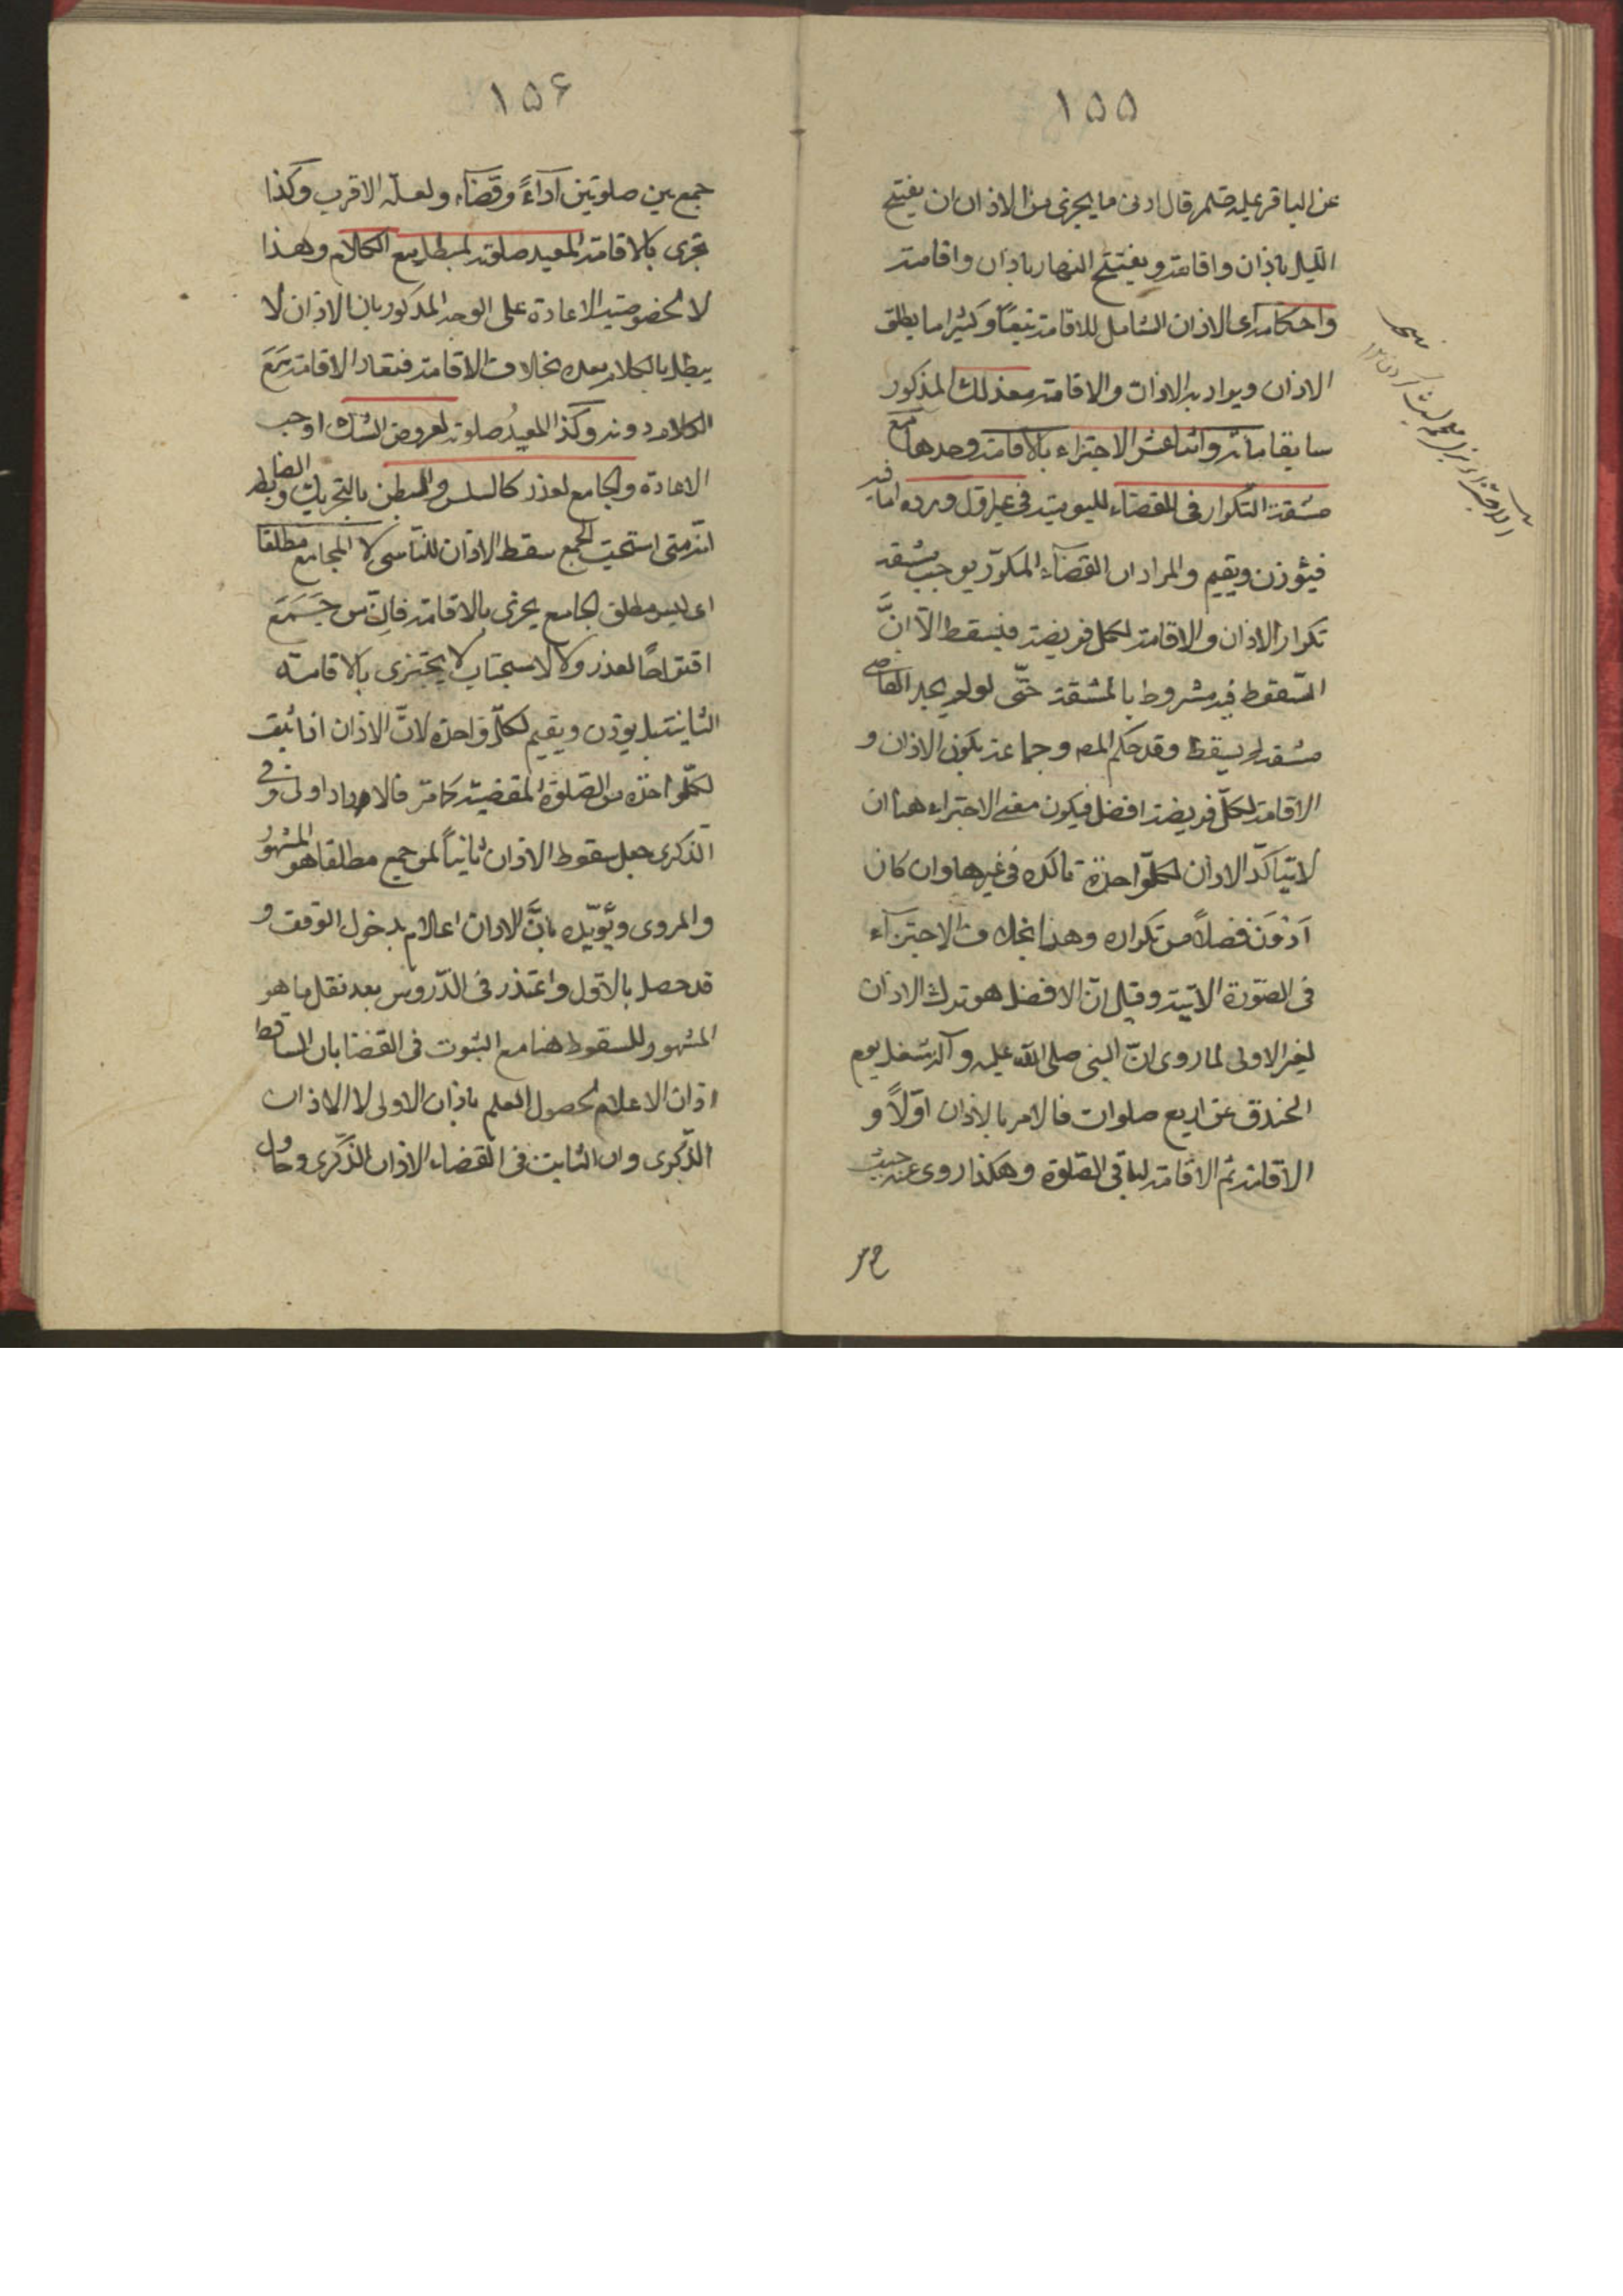 ١٥٥
عن الباقر عليه قال ادنى ما يجزى من الاذان ان يفتتح
الليل باذان واقامة ويفتتح النهار باذان واقامة
واحكامه اى الاذان الشامل للاقامة تبعاً وكثيرا ما يطلق
الاذان ويراد به الاذان والاقامة معذلك المذكور
سابقا مأثرو اثنا عشر الاجتزاء بالاقامة وحدها مع
مشقة التكرار فى القضاء لليومية فى غير اول ورده اما فيه
فيؤذن ويقيم والمراد ان القضاء المكرّر يوجب مشقة
تكرار الاذان والاقامة لكل فريضة فيسقط الّا انَّ
السّقوط فيه مشروط بالمشقة حتّى لو لم يجد القاضى
مشقة لم يسقط وقد حكم المصـ وجماعة بكون الاذان و
الاقامة لكلّ فريضة افضل فيكون معنى الاجتزاء هنا ان
لا يتاكّد الاذان لكلّ واحدة تاكده فى غيرها وان كان
اَدْوَنَ فضلاً من تكراره وهذا بخلاف الاجتزآء
فى الصّورة الاتية وقيل انّ الافضل هو ترك الاذان
لغير الاولى لما روى انّ النبى صلى اللّه عليه وآله شغل يوم
الخندق عن اربع صلوات فالامر بالاذان اوّلاً و
الاقامة ثم الاقامة لباقى الصّلوة وهكذا روى عنه حيث
١٥۶
جمع بين صلوتين آداءً وقضآء ولعلّه الاقرب وكذا
تجزى بالاقامة المعيد صلوته لمبطل مع الكلام وهذا
لا لخصوصية الاعادة على الوجه المذكور بل الاذان لا
يبطل بالكلام بعده بخلاف الاقامة فتعاد الاقامة مَعَ
الكلام دونه وكذا المعيدُ صلوته لعروض الشك اوجب
الاعادة والجامع لعذر كالسلس والمبطن بالتجريك والضابط
انّه متى استحبّ الجمع سقط الاذان للتأسى لا المجامع مطلقا
اى ليس مطلق الجامع يجزى بالاقامة فانّ من جَمَعَ
اقتراحًا لعذر ولا لاستحباب لا يجتزى بالاقامته
الثانية بل يؤذن ويقيم لكلّ واحدة لانّ الاذان اذا ثبت
لكلّ واحدة من الصّلوة المقضيّة كما مرّ فالاداء اولى وفى
الذّكرى جعل سقوط الاذان ثانياً لمن جمع مطلقا هو المشهورُ
والمروى ويُؤيّده بانَّ الاذان اعلام بدخول الوقت و
قد حصل بالاوّل واعتذر فى الدّروس بعد نقل ما هو
المشهور للسقوط هنا مع الثبوت فى القضا بان الساقط
اذان الاعلام لحصول العلم باذان الاولى لا الاذان
الذّكرى وان الثابت فى القضاء الاذان الذّكرى وحاول